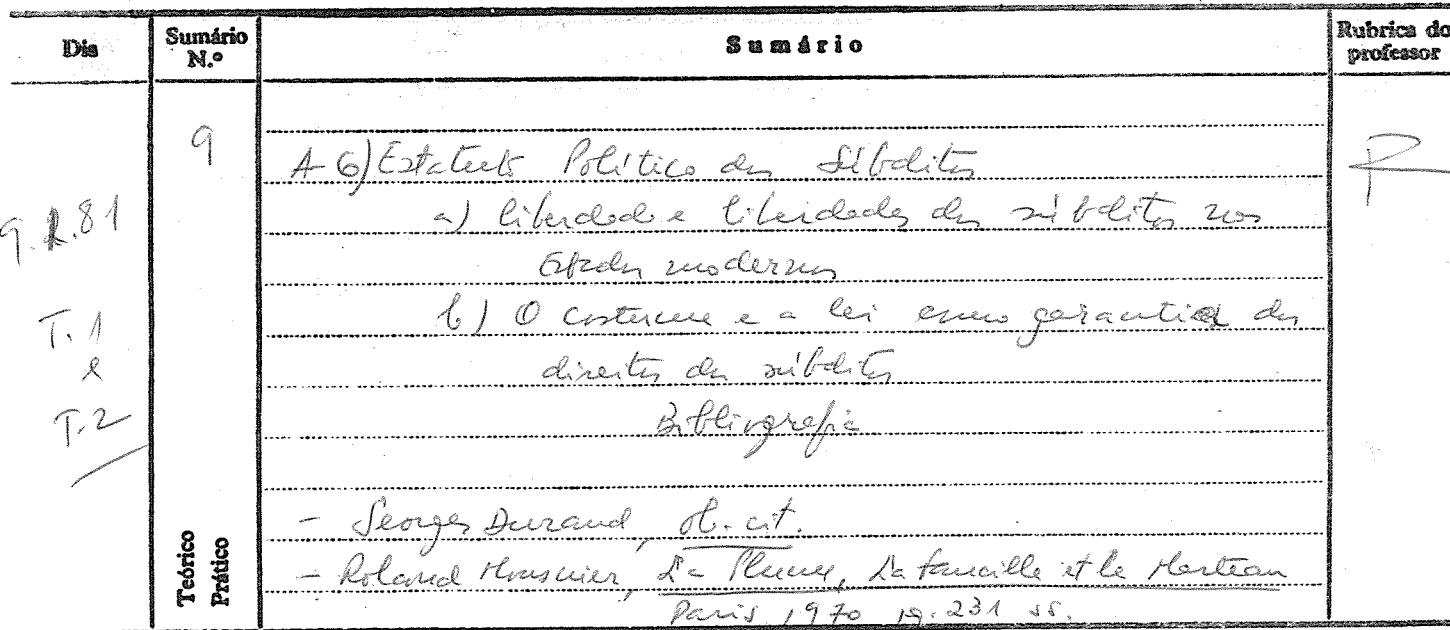 Dia
Sumário N.º
Sumário
Rubrica do professor
9
A-6) Estatuto Político dos Súbditos
9.2.81
a) liberdade e liberdades dos súbditos nos
Estados modernos
T.1
e
T.2
b) O costume e a lei como garantia dos
direitos dos súbditos
Bibliografia
Teórico
Prático
- Georges Durand, ob. cit.
- Roland Mousnier, La Plume, La faucille et le Marteau
Paris 1970 pg. 231 ss.